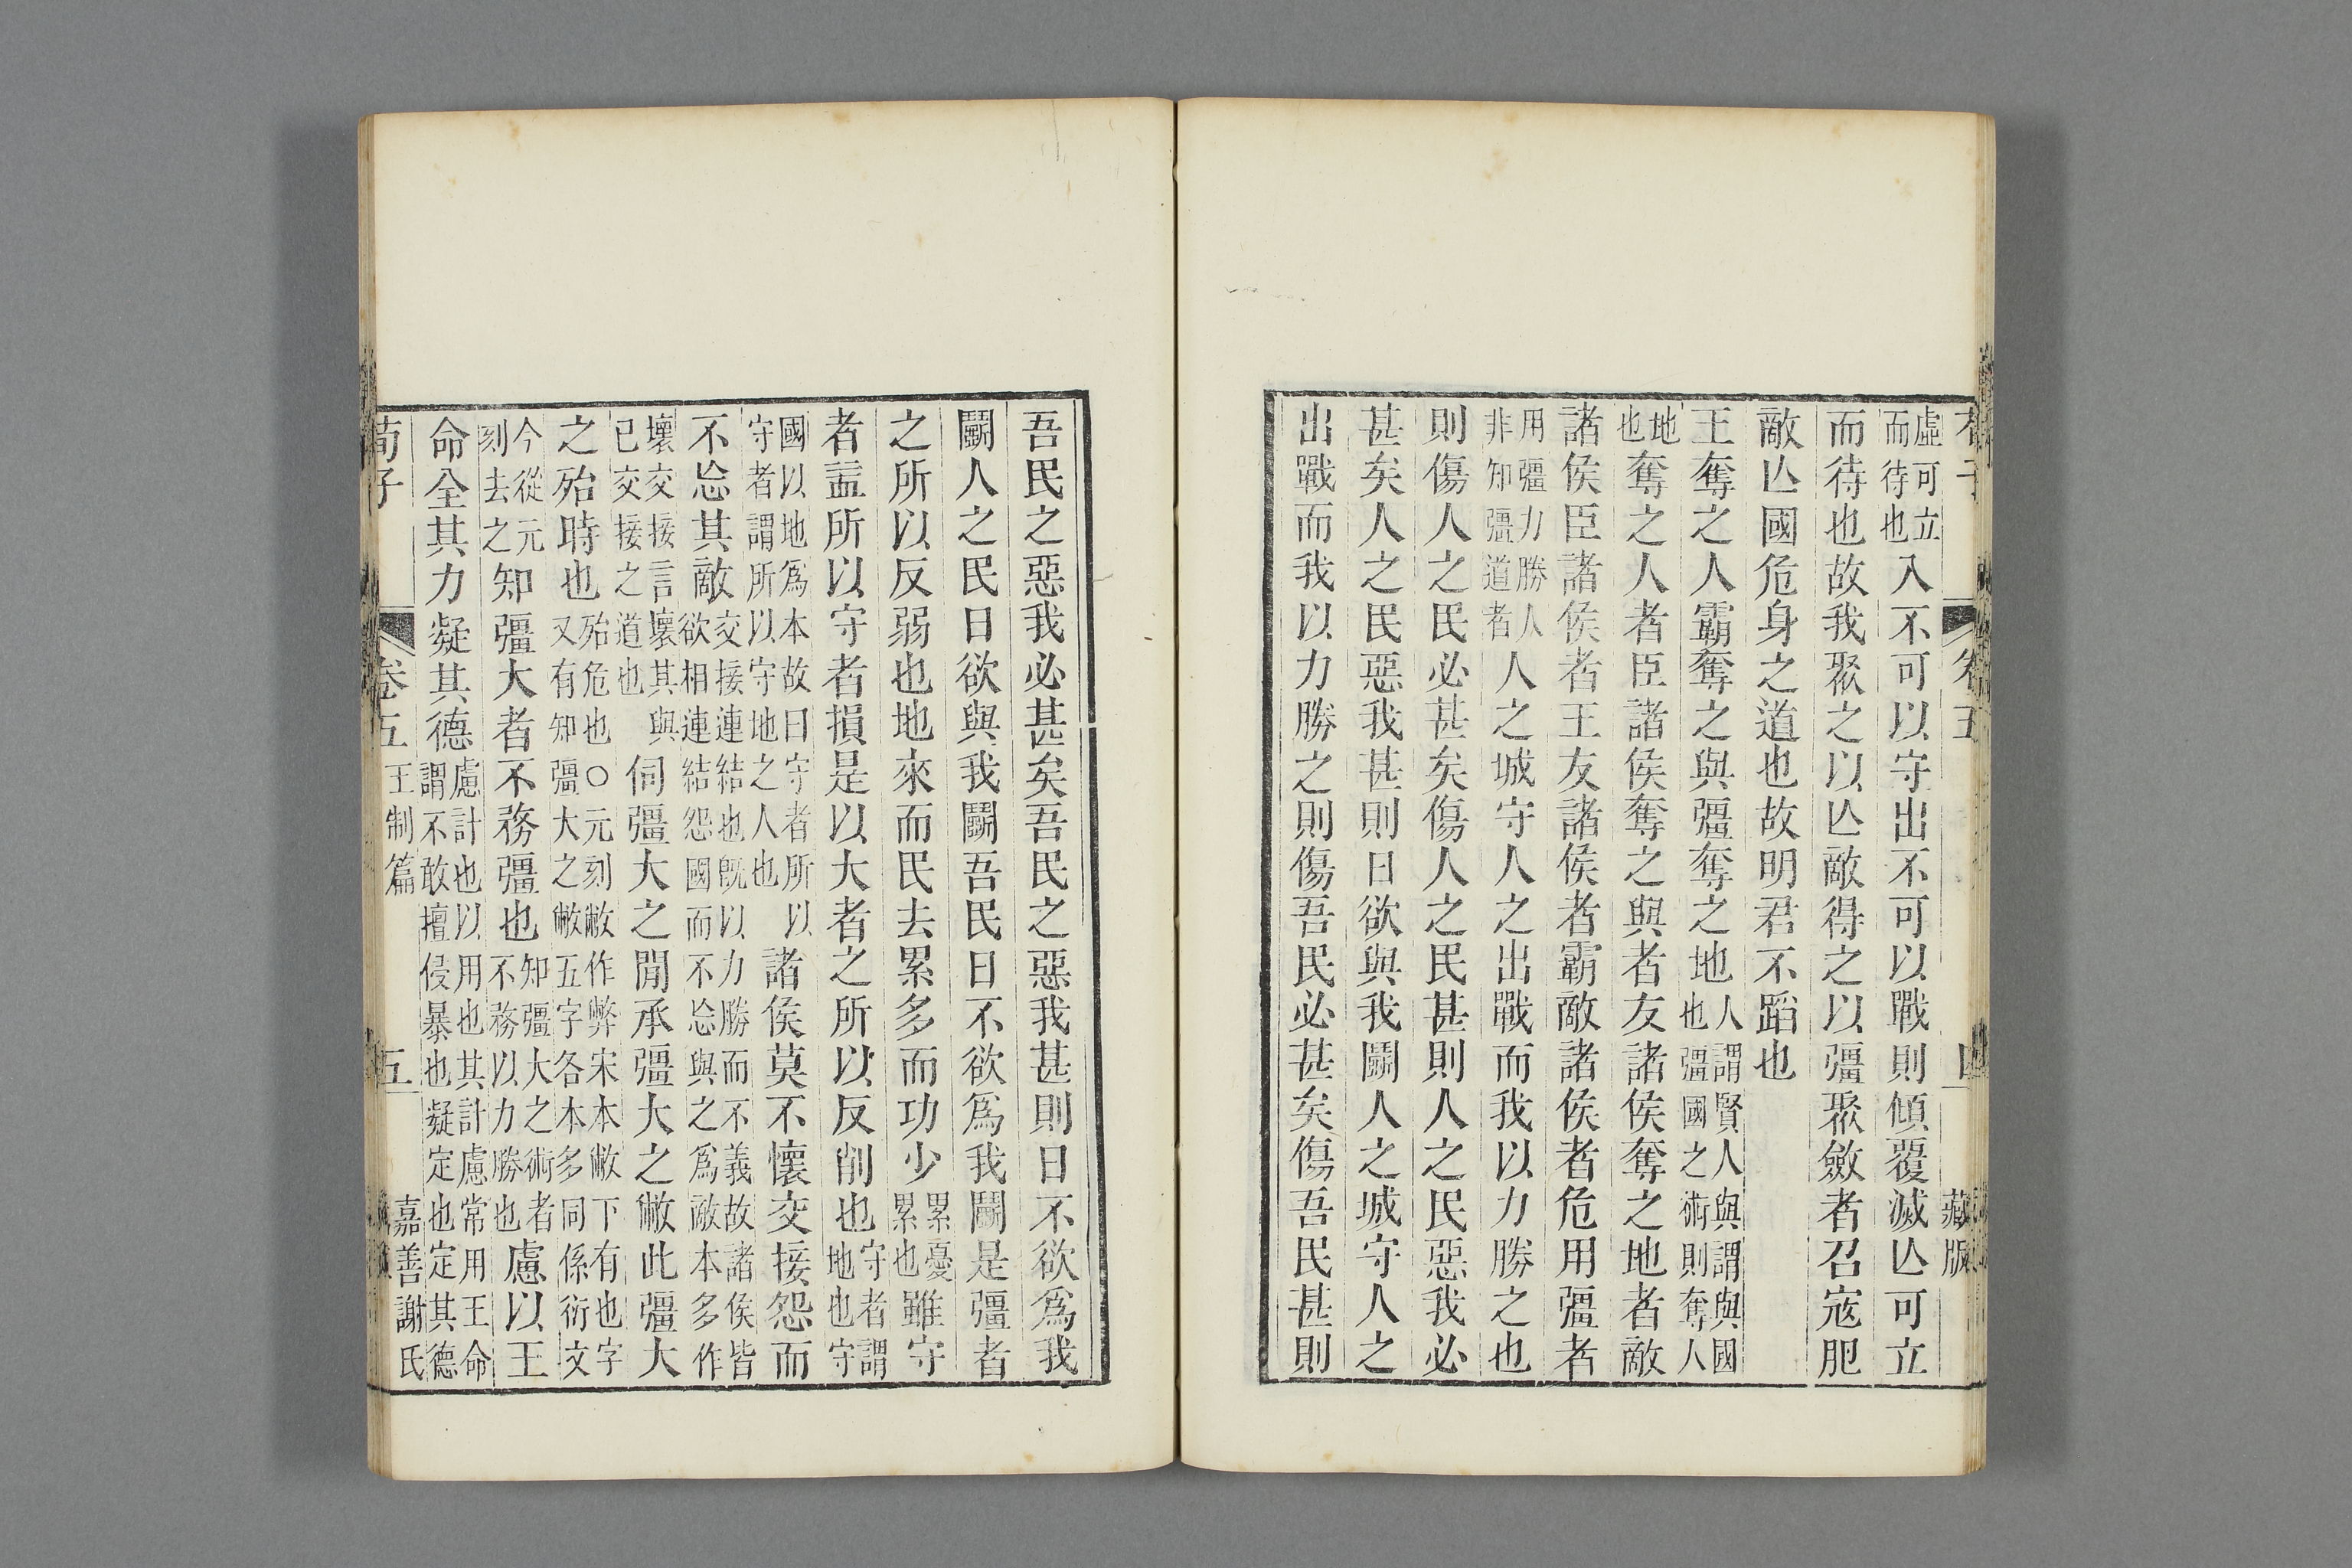 虛可立
而待也
入不可以守出不可以戰則傾覆滅亾可立
而待也故我聚之以亾敵得之以彊聚斂者召寇肥
敵亾國危身之道也故明君不蹈也
王奪之人霸奪之與彊奪之地
人謂賢人與謂與國
也彊國之術則奪人
地
也
奪之人者臣諸侯奪之與者友諸侯奪之地者敵
諸侯臣諸侯者王友諸侯者霸敵諸侯者危用彊者
用彊力勝人
非知彊道者
人之城守人之出戰而我以力勝之也
則傷人之民必甚矣傷人之民甚則人之民惡我必
甚矣人之民惡我甚則日欲與我鬭人之城守人之
出戰而我以力勝之則傷吾民必甚矣傷吾民甚則
藏版
吾民之惡我必甚矣吾民之惡我甚則日不欲爲我
鬭人之民日欲與我鬭吾民日不欲爲我鬭是彊者
之所以反弱也地來而民去累多而功少
累憂
累也
雖守
者益所以守者損是以大者之所以反削也
守者謂
地也守
國以地爲本故曰守者所以
守者謂所以守地之人也
諸侯莫不懷交接怨而
不忘其敵
交接連結也旣以力勝而不義故諸侯皆
欲相連結怨國而不忘與之爲敵本多作
壞交接言壞其與
已交接之道也
伺彊大之閒承彊大之敝此彊大
之殆時也
殆危也○元刻敝作弊宋本敝下有也字
又有知彊大之敝五字各本多同係衍文
今從元
刻去之
知彊大者不務彊也
知彊大之術者
不務以力勝也
慮以王
命全其力凝其德
慮計也以用也其計慮常用王命
謂不敢擅侵暴也凝定也定其德
荀子
卷五
王制篇
五
嘉善謝氏